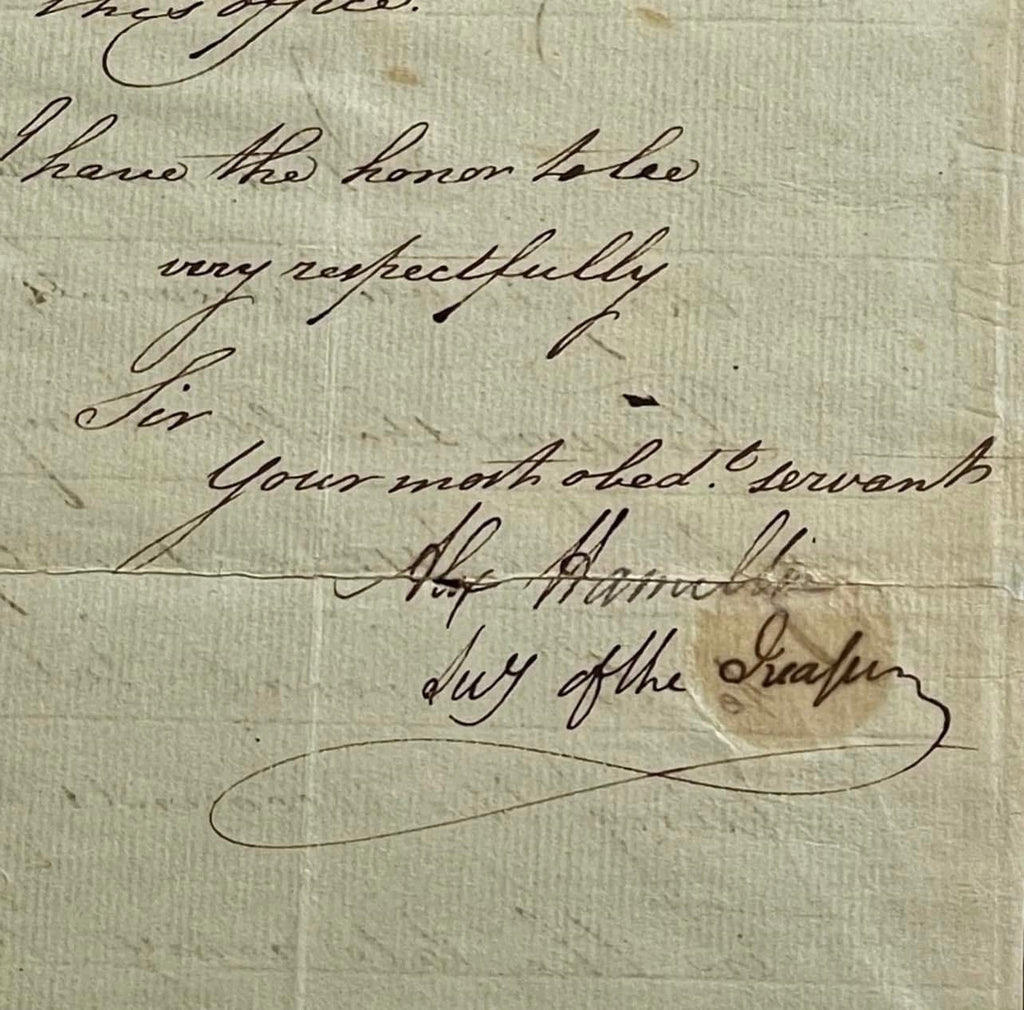 this office.
I have the honor to be
very respectfully
Sir
Your most obed.t servant
Alex Hamilton
Secy of the Treasury